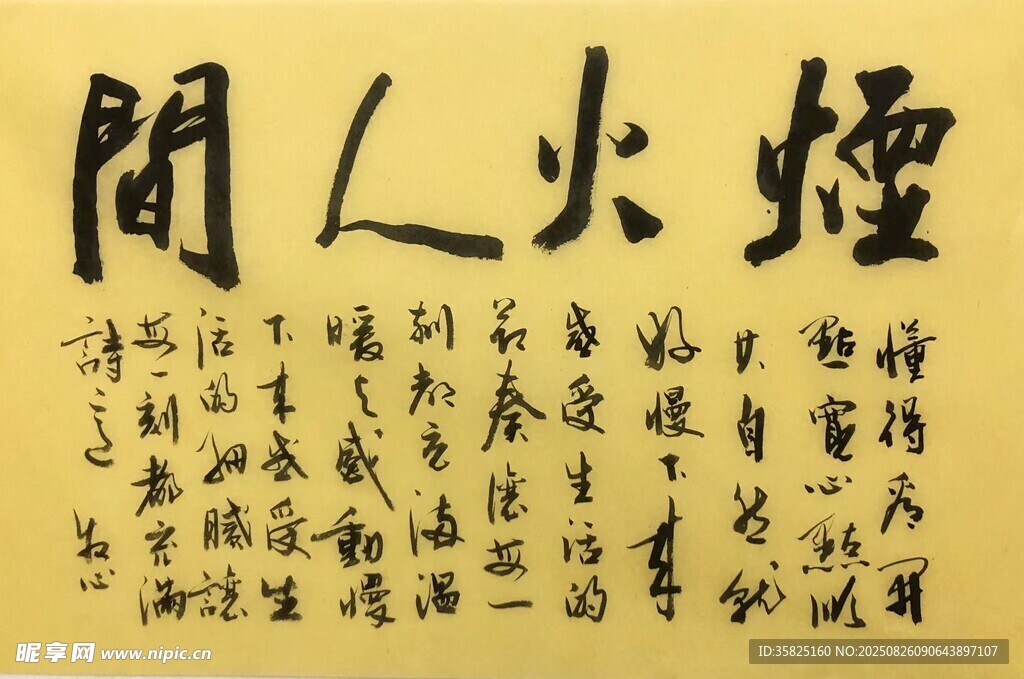 煙火人間
懂得看開
點寬心點順
其自然就
好慢下來
感受生活的
節奏讓每一
刻都充滿溫
暖与感動慢
下來感受生
活的細膩讓
每一刻都充滿
詩意
昵享网 www.nipic.cn
ID:35825160 NO:20250826090643897107